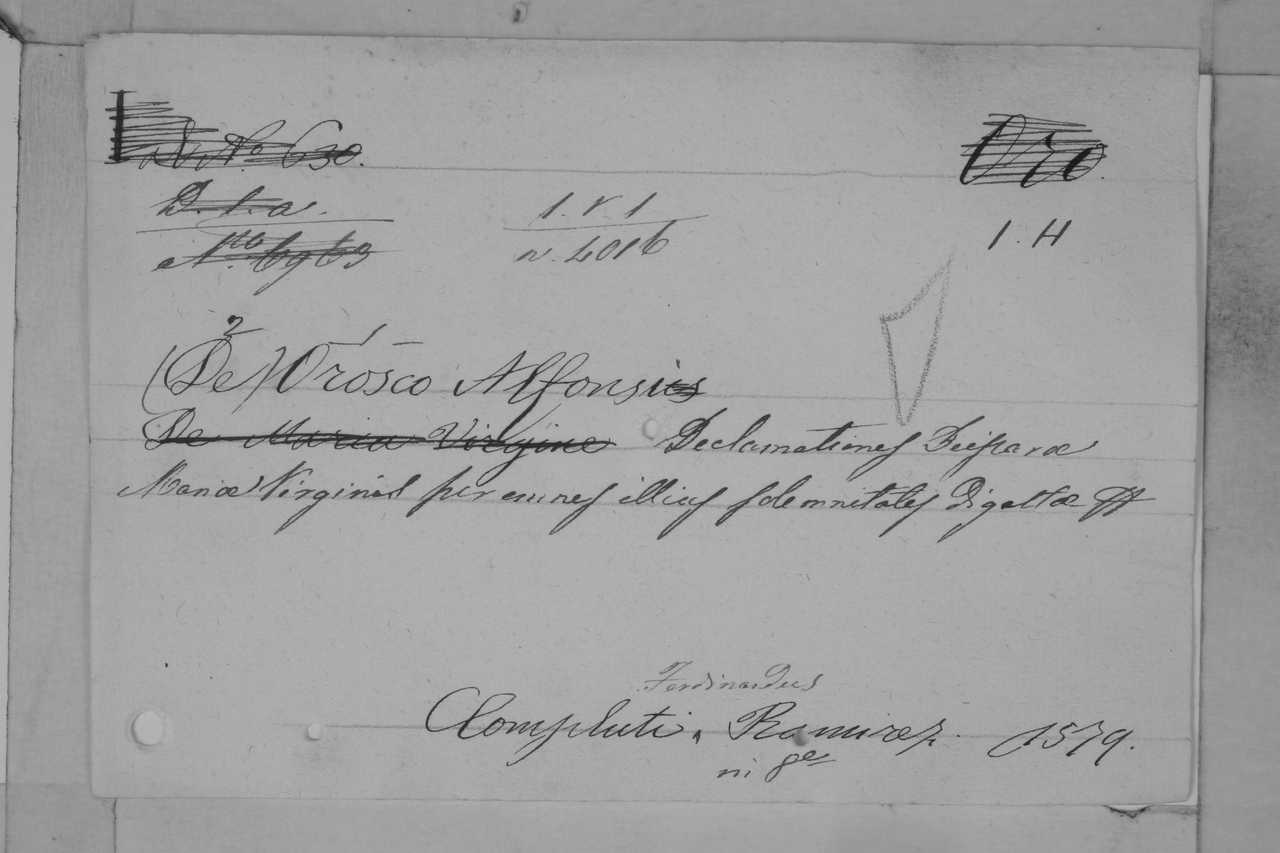 No. 630.
D. 1. a.
1. V. 1
N.ro 6963
n. 4016
1. H
2 1
(De) Orosco Alfonsius
De Maria Virgine Declamationes Deiparæ
Mariæ Virginis per omnes illius solemnitates digestæ
Ferdinandus
Compluti, Ramirez. 1579.
in 8º